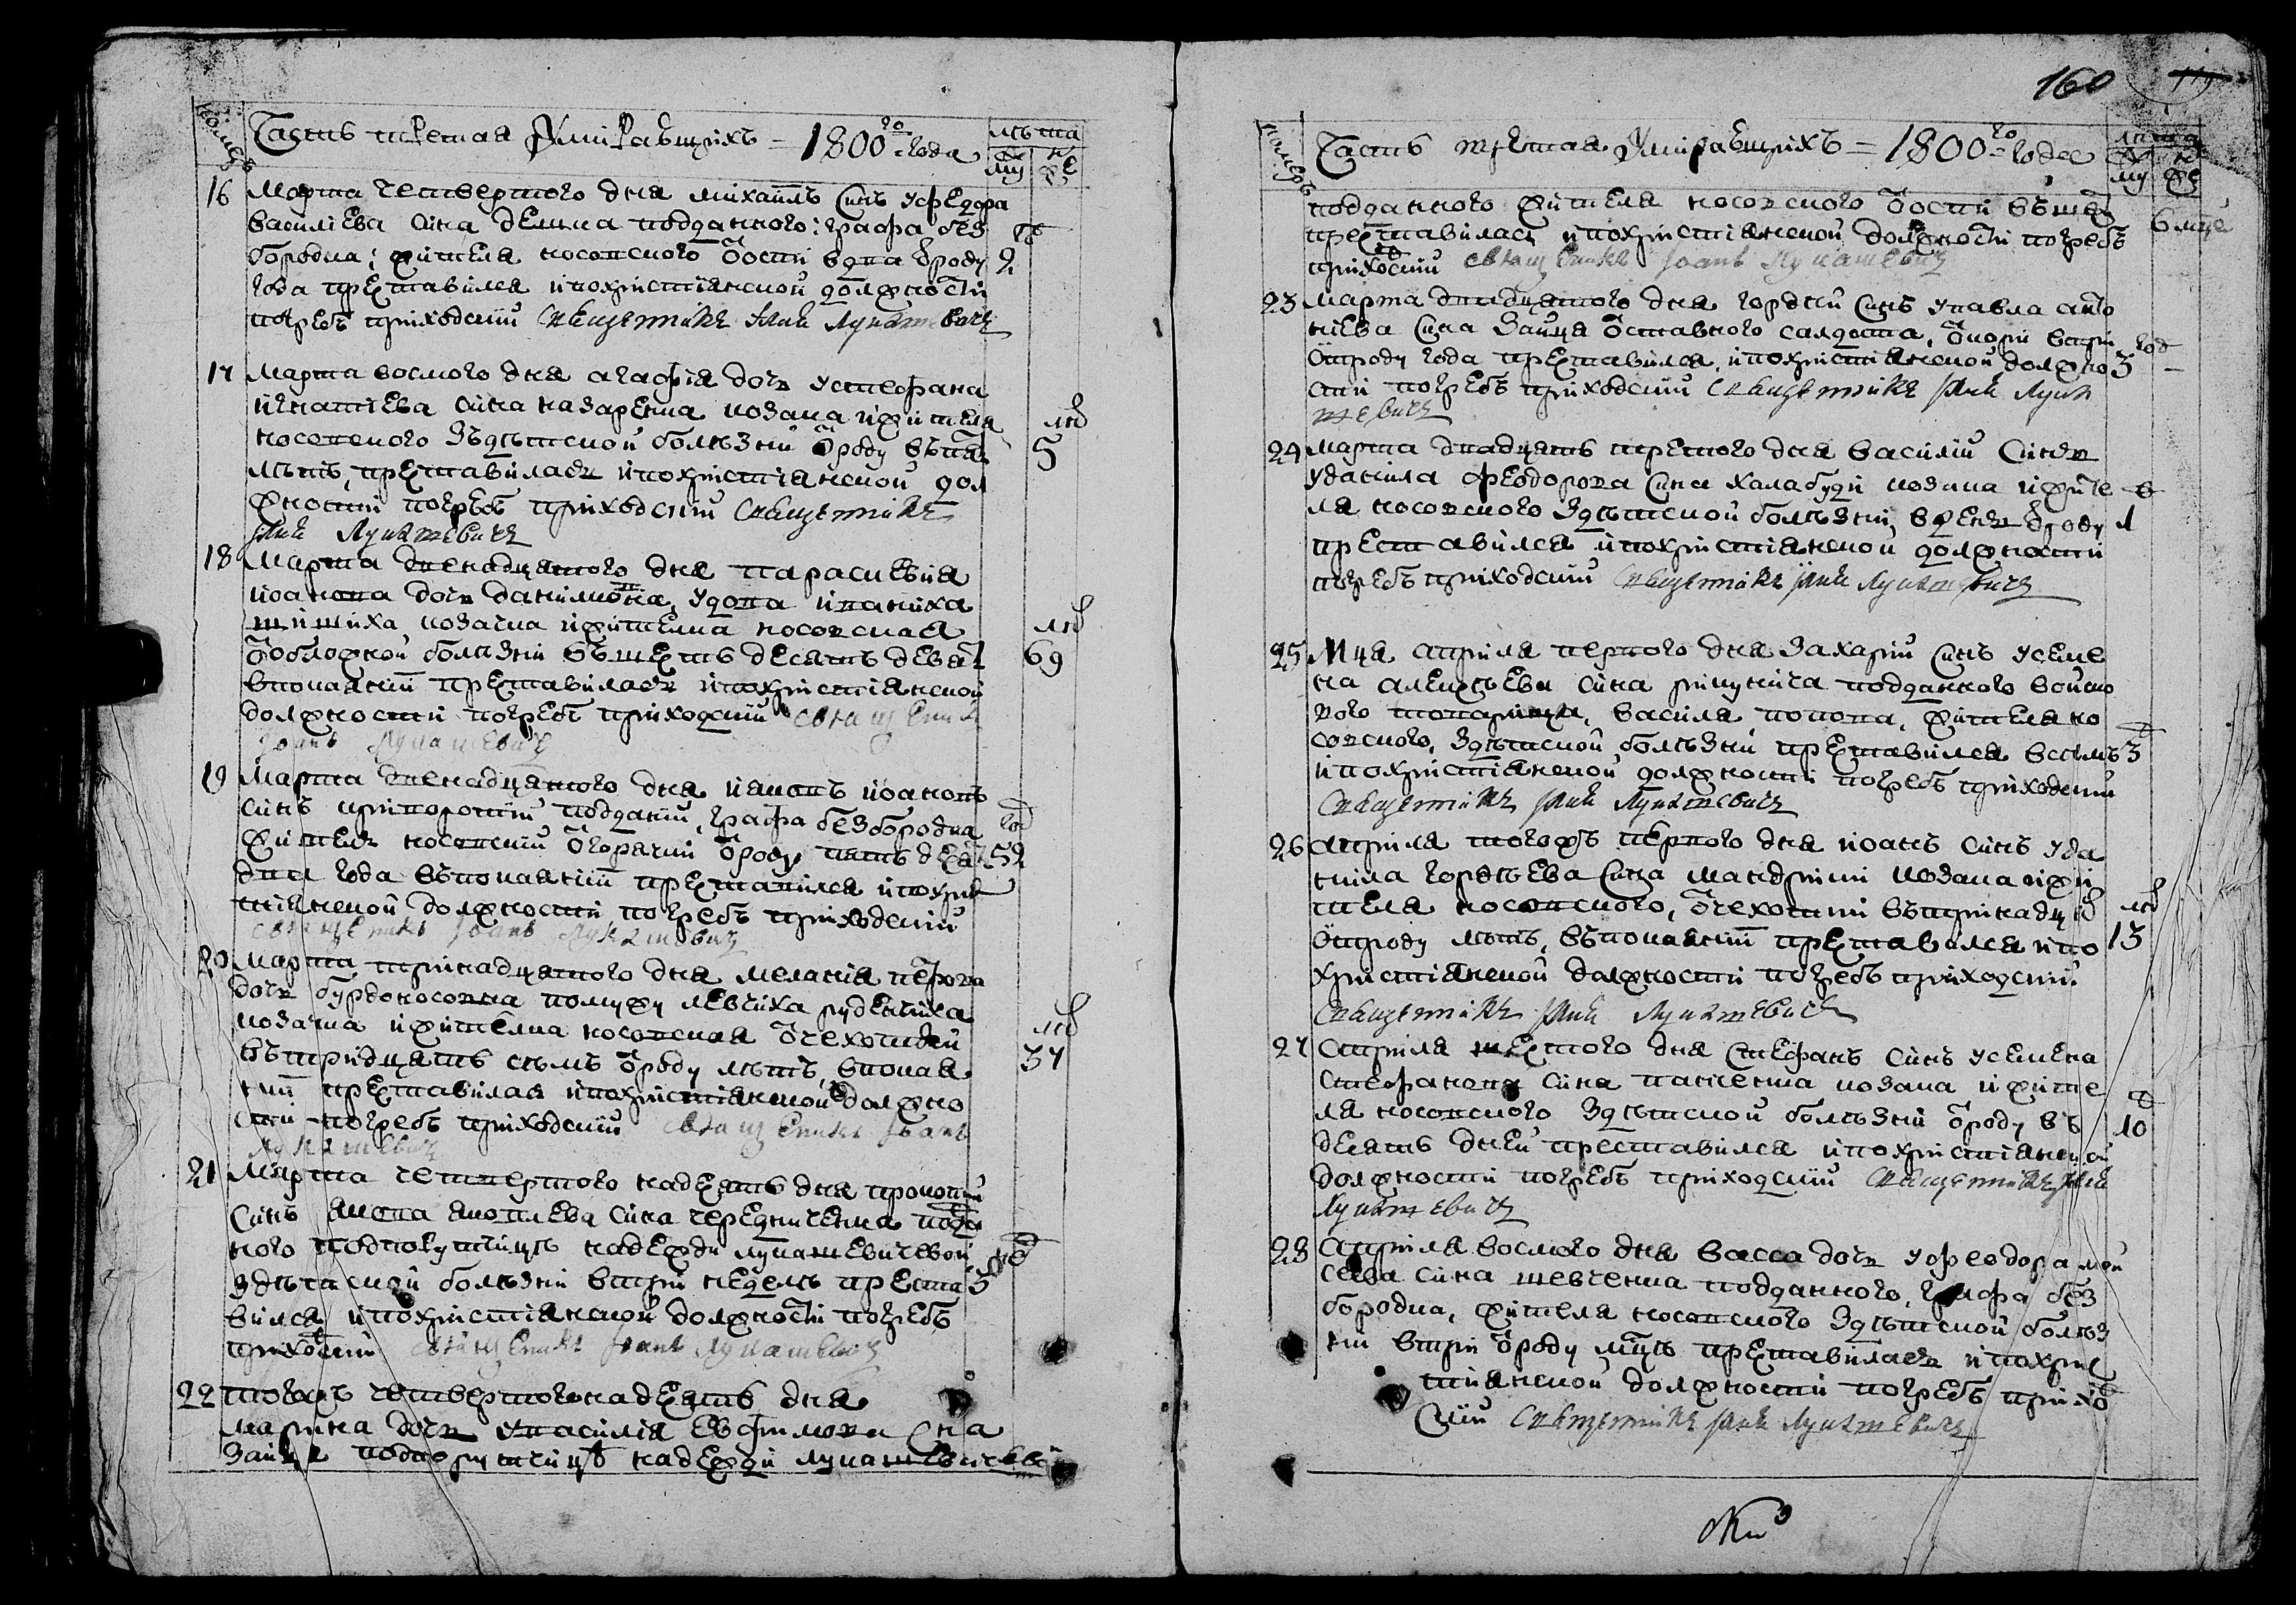 номеръ
Часть третая Умиравшихъ = 1800го года
лѣта
му
же
16 Марта четвертого дня михаилъ синъ уфедора
василіева сина демка подданного: графа без
бородка: жителя носовского о оспи вдва о роду
года преставился и похристіянской должности
погребъ приходскій священникъ Іоанъ Лукашевичъ
го
2
17 Марта восмого дня агафія дочь устефана
игнатіева сина назаренка козака и жителя
носовского здѣтской болѣзни о роду въ пять
лѣтъ, преставилась и похристіянской дол
жности погребъ приходскій священникъ
Іоанъ Лукашевичъ
лѣ
5
18 Марта двенадцятого дня параскевія
иоанова дочь данилиовна, удова
шишиха козачка и жителка носовская
о обложной болѣзни въ шестъ десятъ девят
впокаяніи преставилась и похристіянской
должности погребъ приходскій священникъ
Іоанъ Лукашевичъ
лѣ
69
19 Марта двенадцятого дня иаковъ иоановъ
синъ подданій, графа безбородка
житель носовскій о горячки о роду пять десят
два года въ покаяніи преставился и похрис
тіянской должности погребъ приходскій
священникъ Іоанъ Лукашевичъ
год
52
20 Марта тринадцятого дня меланія петрова
дочь бурдоносовна помужу левчиха руденчиха
козачка и жителка носовская о чехотки
въ тридцять семъ о роду лѣтъ, впокая
нии преставилая и похристіянской должно
сти погребъ приходскій священникъ Іоанъ
Лукашевичъ
лѣ
37
21 Марта четвертого надесять дня прокопій
синъ якова яковлева сина чередниченка подда
ного подпоручицѣ надежди лукашевичевой
здѣтской болѣзни втри неделѣ преста
вился и похристіянской должности погребъ
приходскій священникъ Іоанъ Лукашевичъ
не
3
22 тогожъ четвертогонадесять дня
марина дочь увасилія евфимова сна
зайця подпоручицѣ надежди лукашевичевой
160
номеръ
Часть третая Умиравшихъ = 1800го года
лѣта
му
же
подданного жителя носовского о оспи въ
преставилась и похристіянской должности погребъ
приходскій священникъ Іоанъ Лукашевичъ
6 мце
23 Марта двадцятого дня гордѣй синъ упавла анто
ніева сина зайця оставного салдата, о кори втри
о отроду года преставился, и похристіянской должно
сти погребъ приходскій священникъ Іоанъ Лука
шевичъ
год
3
24 марта двадцять третого дня василій синъ
уданила феодорова сина халабуди козака и жите
ля носовского здѣтской болѣзни, в день о роду
преставился и похристіянской должности
погребъ приходскій священникъ Іоанъ Лукашевичъ
1
25 Мця априля первого дня захарій синъ усеме
на алексѣева сина подданного войско
вого товариша, василя попова, жителя но
совского, здѣтской болѣзни преставился
и похристіянской должности погребъ приходскій
священникъ Іоанъ Лукашевичъ
3
26 априля тогожъ первого дня иоанъ синъ уда
ниила гордѣева сина мандрики козака и жи
теля носовского, о чехотки въ тринадцять
о отроду лѣтъ, въ покаяніи преставился и по
христіянской должности погребъ приходскій
священникъ Іоанъ Лукашевичъ
лѣ
13
27 Априля шестого дня стефанъ синъ усемена
стефанова сина панченка козака и жите
ля носовского здѣтской болѣзни о роду въ
десять дней преставился и похристіянской
должности погребъ приходскій священникъ Іоанъ
Лукашевичъ
д
10
28 Априля восмого дня васса дочь уфеодора мои
сеева сина шевченка подданного, графа без
бородка, жителя носовского здѣтской болѣз
ни втри о роду мцѣ преставилась и похрис
тиянской должности погребъ прихо
скій священникъ Іоанъ Лукашевичъ